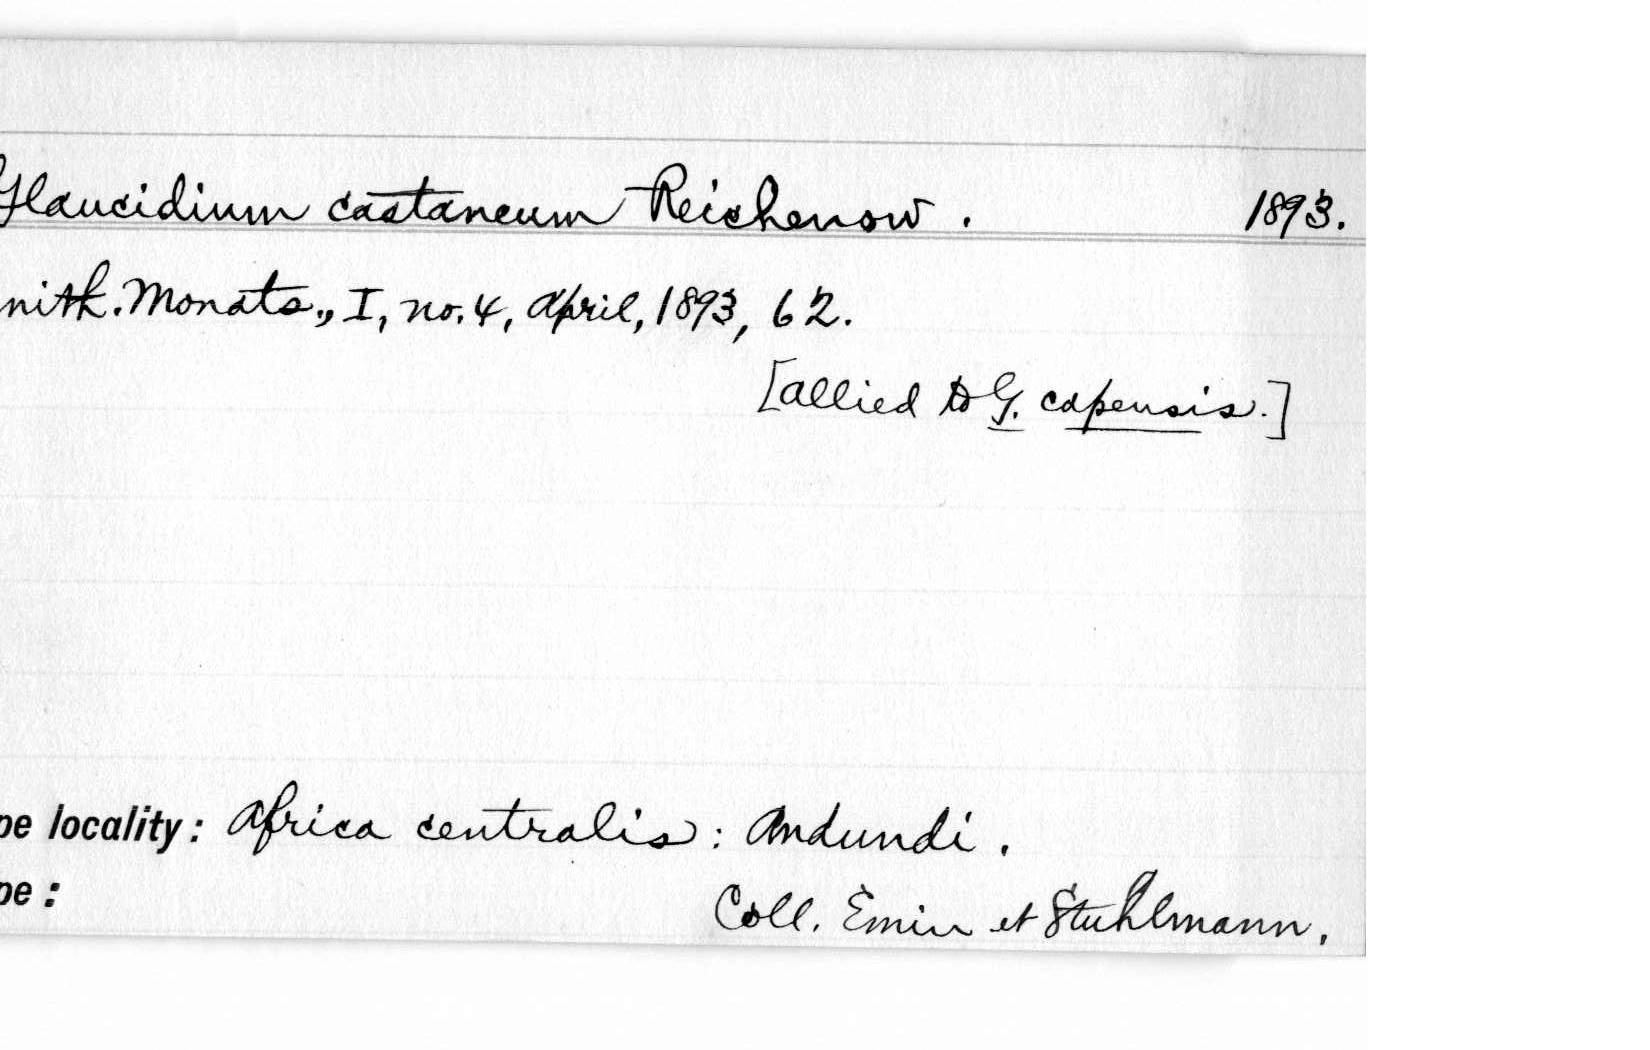 Glaucidium castaneum Reichenow. 1893.
nith. Monats., I, no. 4, April, 1893, 62.
[allied to G. capensis.]
pe locality: Africa centralis: Andundi.
pe:
Coll. Emin et Stuhlmann.